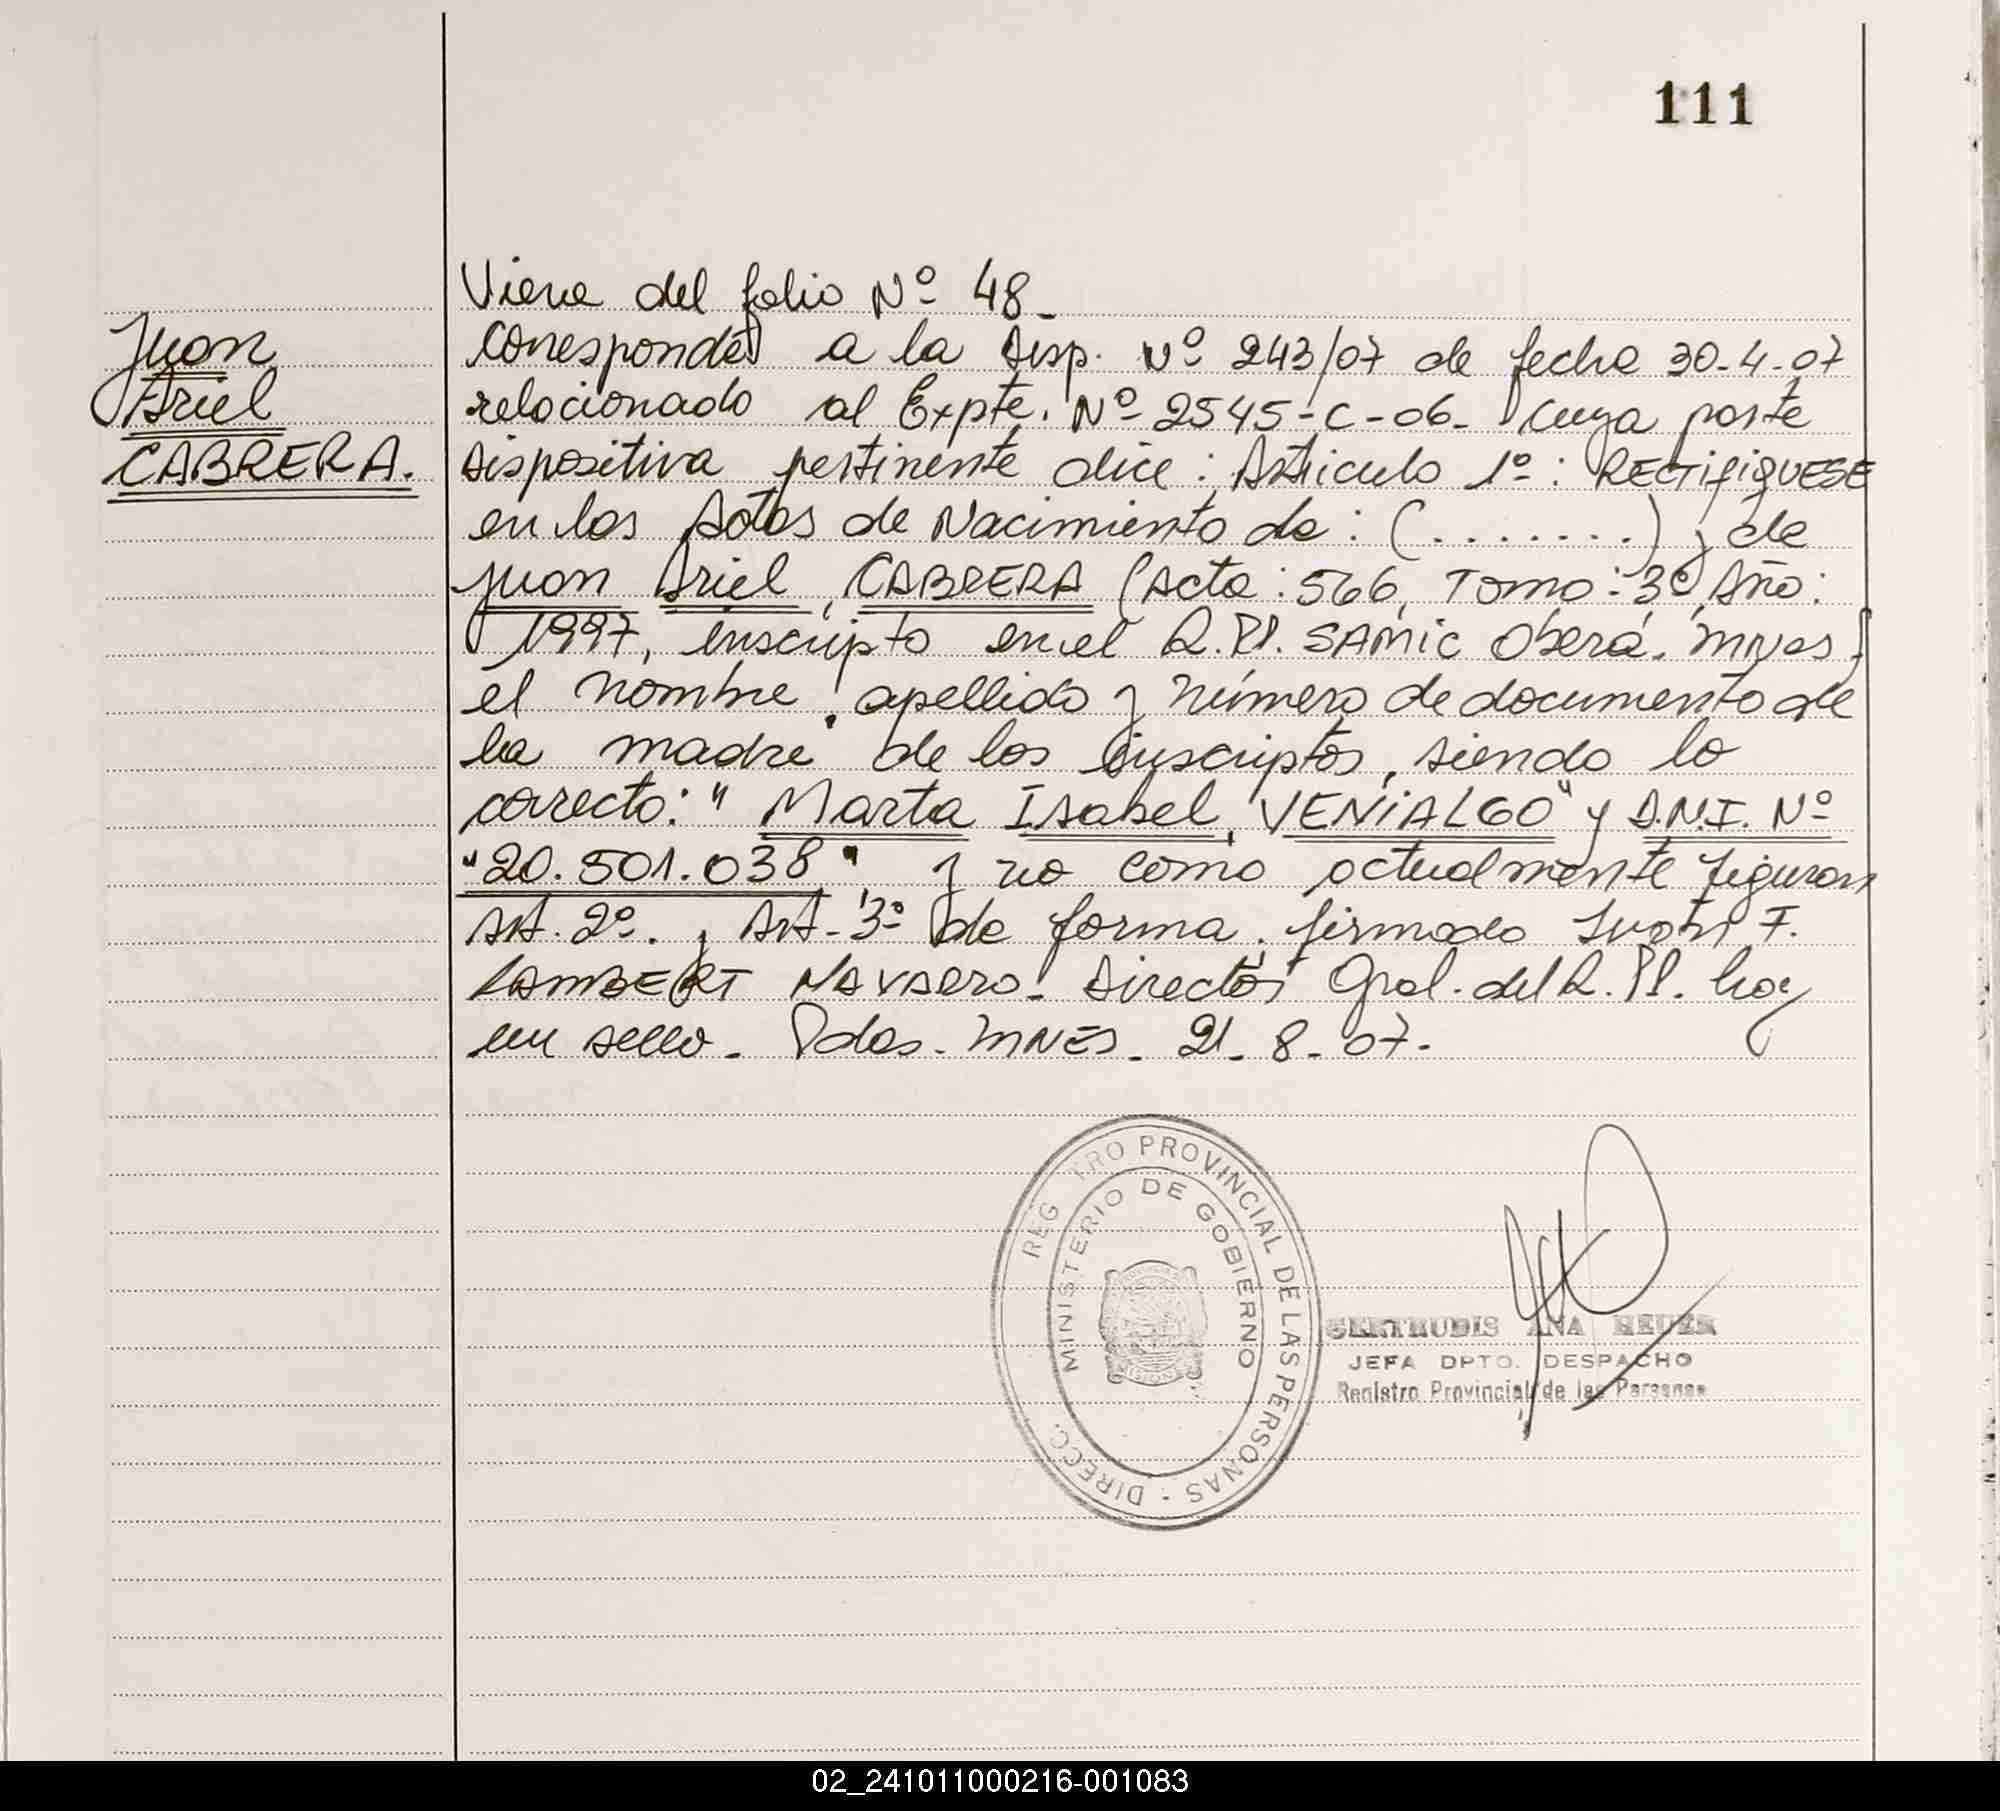 111
Juan
Ariel
CABRERA.
Viene del folio Nº 48_
Corresponde a la Disp. Nº 243/07 de fecha 30-4-07
relacionado al Expte. Nº 2545-C-06_ Cuya parte
dispositiva pertinente dice: Artículo 1º: RECTIFIQUESE
en las Actas de Nacimiento de: (........) y de
Juan Ariel, CABRERA (Acta: 566, Tomo: 3º, Año:
1997, inscripto en el R.PP. SAMIC Oberá. Mnes)
el nombre, apellido y número de documento de
la madre de los inscriptos, siendo lo
correcto: "Marta Isabel, VENIALGO" y D.N.I. Nº
"20.501.038" y no como actualmente figuran
Art. 2º. y Art. 3º de forma. firmado Juan F.
LAMBERT NAVARRO. Director Gral. del R.PP. hay
un sello. Pdas. MNES. 21-8-07.
REG TRO PROVINCIAL DE LAS PERSONAS - DIRECC.
MINISTERIO DE GOBIERNO
GERTRUDIS ANA
JEFA DPTO. DESPACHO
Registro Provincial de las Personas
02_241011000216-001083